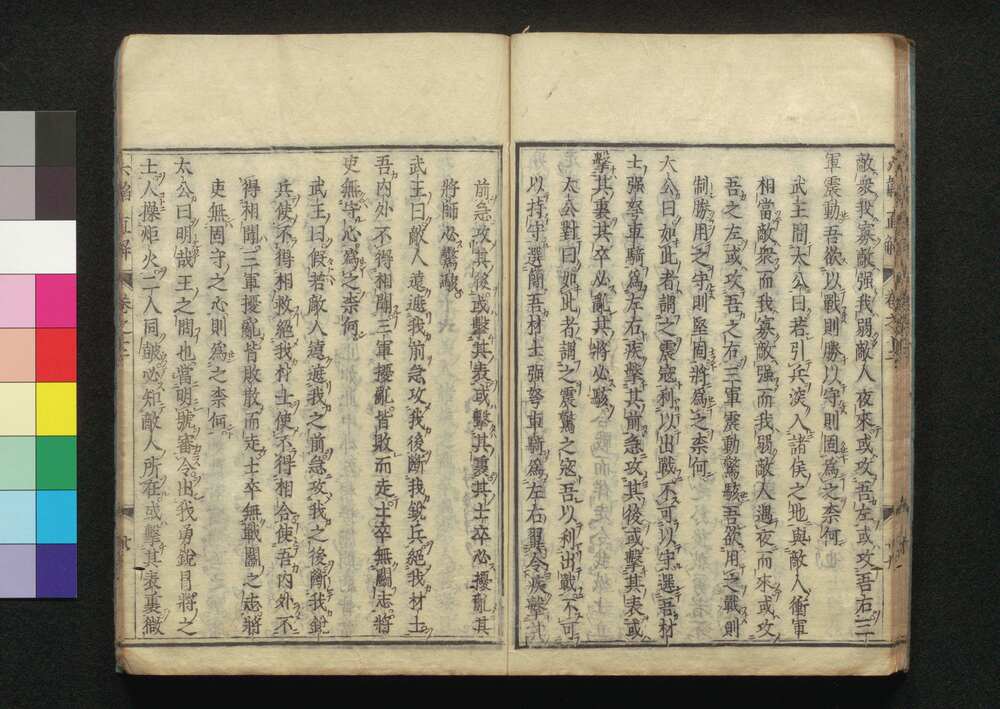 敵衆我寡敵强我弱敵人夜來或攻吾左或攻吾右三
軍震動吾欲以戰則勝以守則固爲之奈何
武王問太公曰若引兵深入諸侯之地與敵人衝軍
相當敵衆而我寡敵强而我弱敵人遇夜而來或攻
吾之左或攻吾之右三軍震動驚駭吾欲用之戰則
制勝用之守則堅固將爲之奈何
太公曰如此者謂之震寇利以出戰不可以守選吾材
士强弩車騎爲左右疾擊其前急攻其後或擊其表或
擊其裏其卒必亂其將必駭
太公對曰如此者謂之震驚之寇吾以利出戰不可
以持守選簡吾材士强弩車騎爲左右翼令疾擊其
前急攻其後或擊其表或擊其裏其士卒必擾亂其
將帥必驚駭
武王曰敵人遠遮我前急攻我後斷我銳兵絕我材士
吾内外不得相聞三軍擾亂皆敗而走士卒無鬭志將
吏無守心爲之奈何
武王曰假若敵人遠遮我之前急攻我之後斷我銳
兵使不得相救絕我材士使不得相合使吾内外不
得相聞三軍擾亂皆敗散而走士卒無戰鬭之志將
吏無固守之心則爲之奈何
太公曰明哉王之問也當明號審令出我勇銳冒將之
士人操炬火二人同鼓必知敵人所在或擊其表裏微
六韜直解
卷之二